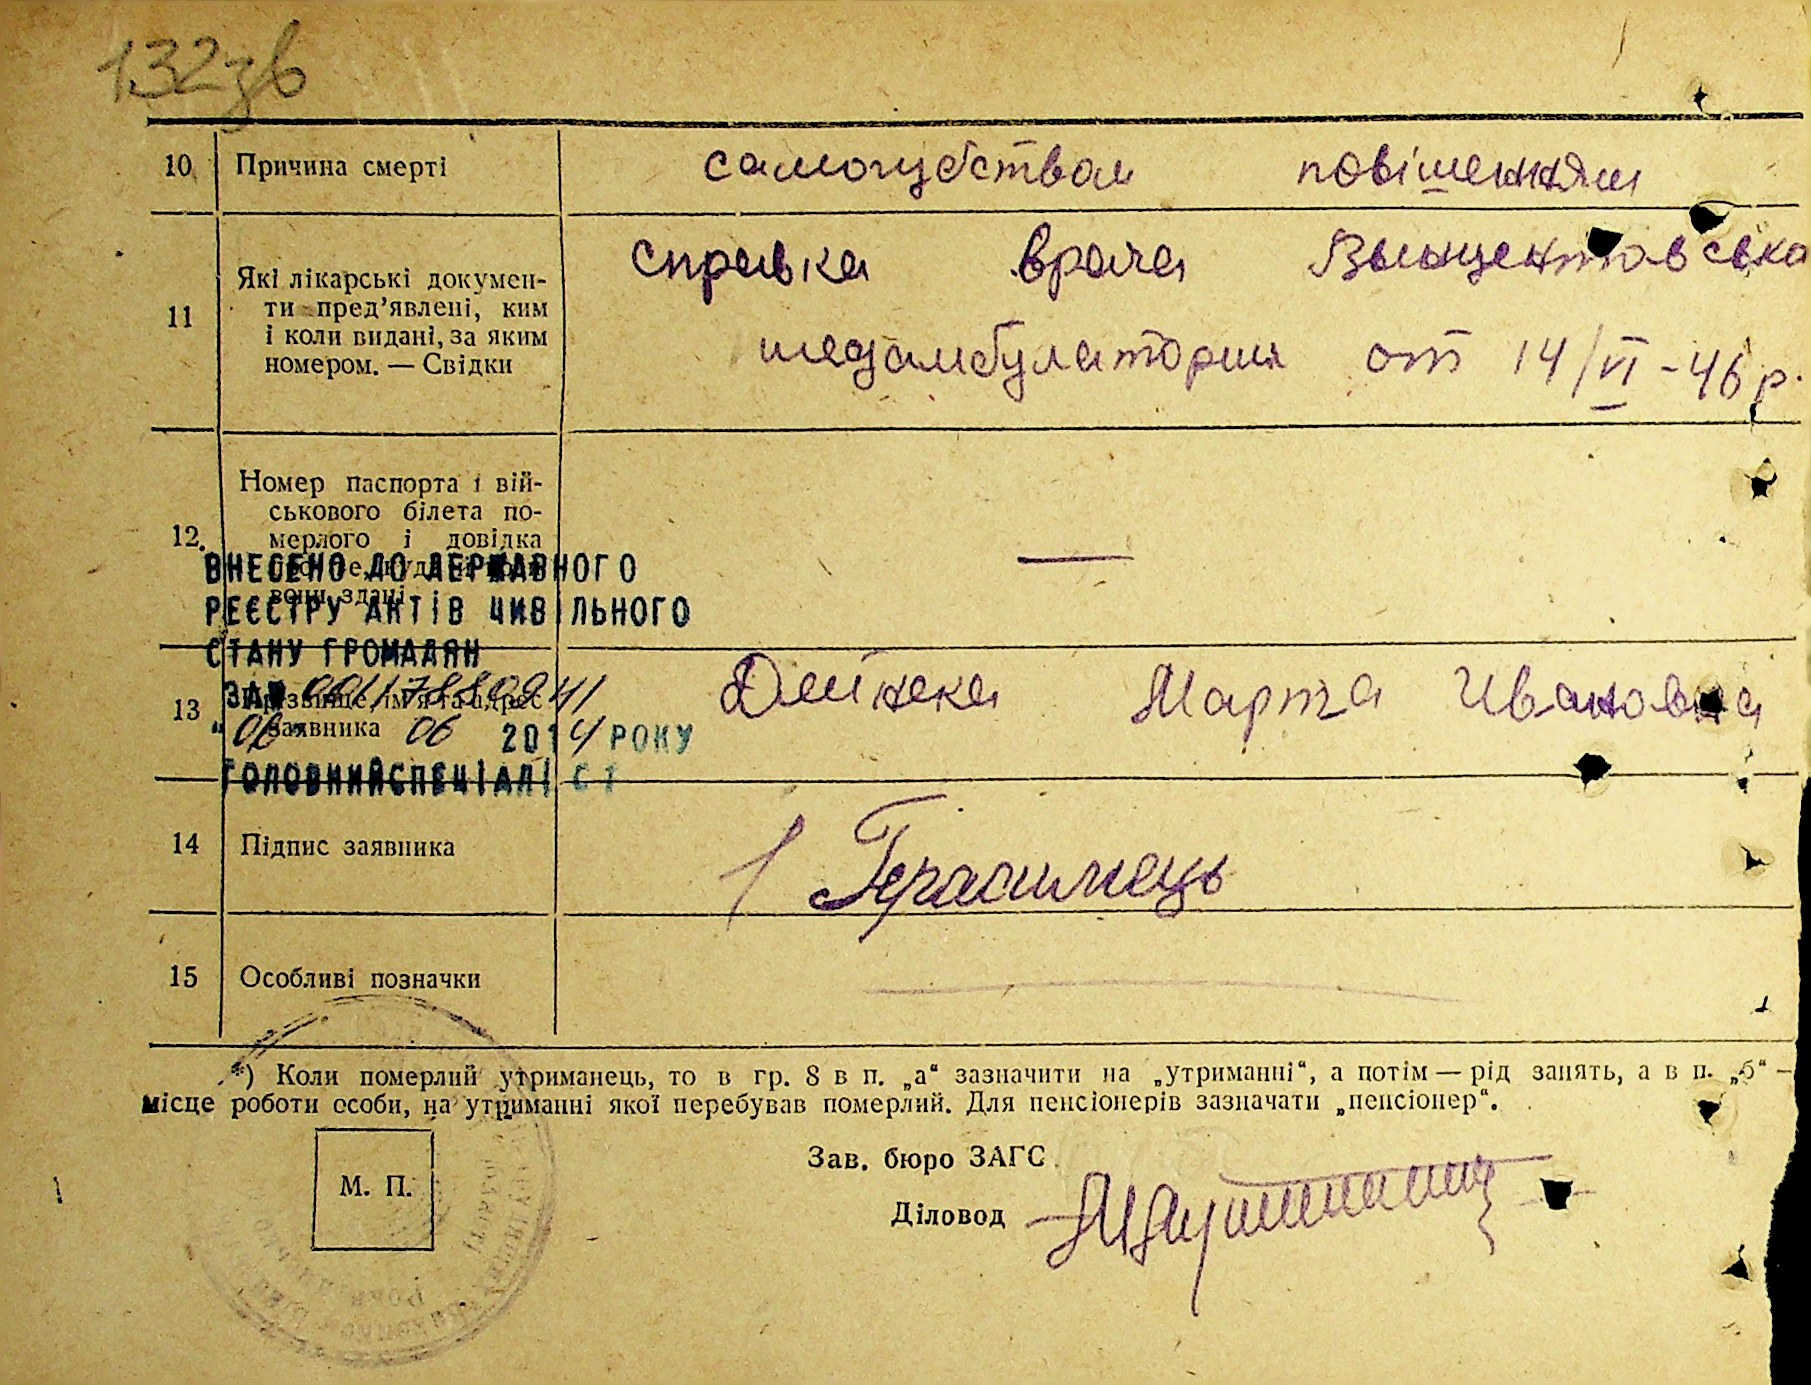 132зв
10 Причина смерті самогубством повішенням
11 Які лікарські докумен-
ти пред’явлені, ким
і коли видані, за яким
номером. — Свідки
справка врача
медамбулатория от 14/VI - 46 р.
12. Номер паспорта і вій-
ськового білета по-
мерлого і довідка
вони здані —
ВНЕСЕНО ДО ДЕРЖАВНОГО
РЕЄСТРУ АКТІВ ЦИВІЛЬНОГО
СТАНУ ГРОМАДЯН
ЗА №
"06" 06 2014 РОКУ
ГОЛОВНИЙ СПЕЦІАЛІСТ
13 Прізвище, ім’я та адрес
заявника
Дейнека Марта Ивановна
14 Підпис заявника Герасимець
15 Особливі позначки
*) Коли померлий утриманець, то в гр. 8 в п. „а“ зазначити на „утриманні“, а потім — рід занять, а в п. „б“ —
місце роботи особи, на утриманні якої перебував померлий. Для пенсіонерів зазначати „пенсіонер“.
М. П.
Зав. бюро ЗАГС
Діловод